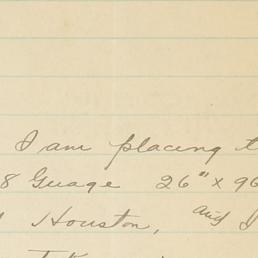 I am placing t
8 Guage 26" x 96
Houston, and I